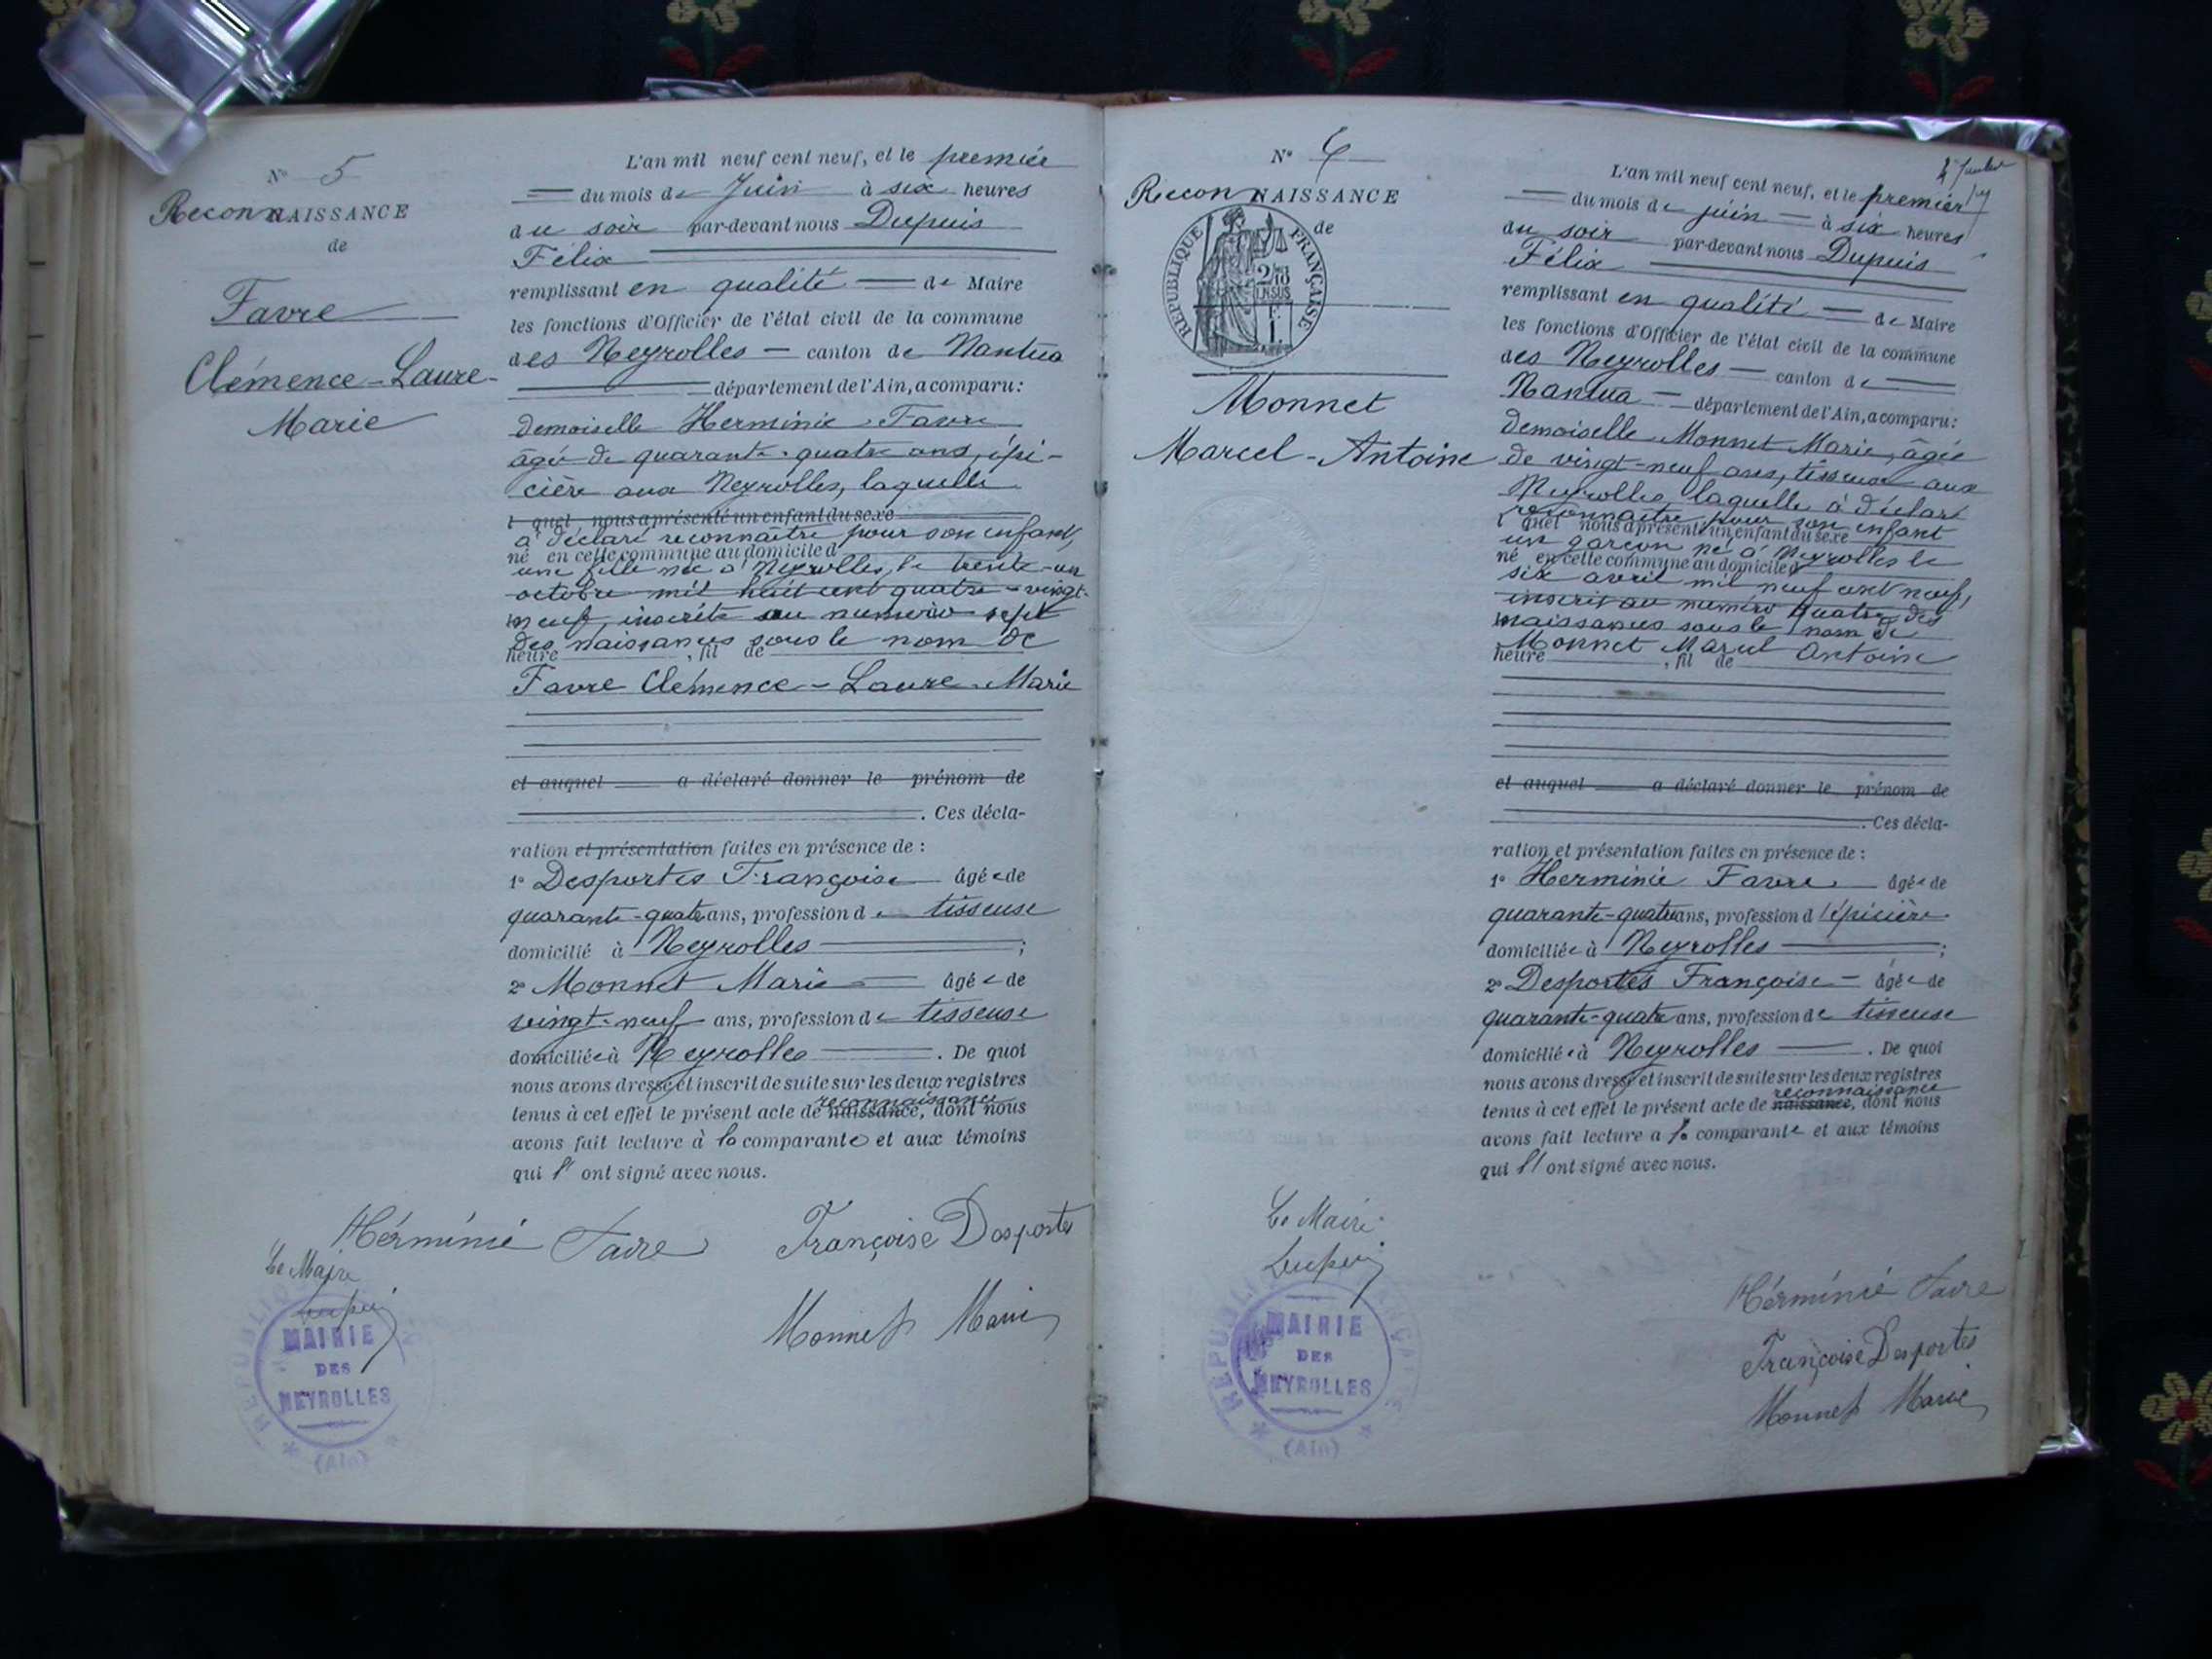 N° 5
ReconnAISSANCE
de
Favre
Clémence-Laure-
Marie
L'an mil neuf cent neuf, et le premier
du mois de Juin à six heures
du soir par-devant nous Dupuis
Félix
remplissant en qualité de Maire
les fonctions d'Officier de l'état civil de la commune
des Neyrolles canton de Nantua
département de l'Ain, a comparu:
demoiselle Herminie Favre
âgée de quarante-quatre ans, épi-
cière aux Neyrolles, laquelle
l quel nous a présenté un enfant du sexe
a déclaré reconnaître pour son enfant,
né en cette commune au domicile d
une fille née à Neyrolles, le trente-un
octobre mil huit cent quatre-vingt-
neuf, inscrite au numéro sept
des naissances sous le nom de
heure , fil de
Favre Clémence-Laure-Marie
et auquel a déclaré donner le prénom de
. Ces décla-
ration et présentation faites en présence de :
1° Desportes Françoise âgée de
quarante-quatre ans, profession de tisseuse
domicilié à Neyrolles ;
2° Monnet Marie âgée de
vingt-neuf ans, profession de tisseuse
domiciliée à Neyrolles . De quoi
nous avons dressé et inscrit de suite sur les deux registres
reconnaissance
tenus à cet effet le présent acte de naissance, dont nous
avons fait lecture à la comparante et aux témoins
qui l'ont signé avec nous.
Hérminie Favre Françoise Desportes
Le Maire
Dupuis
Monnet Marie
MAIRIE
DES
NEYROLLES
(Ain)
N° 6
ReconNAISSANCE
de
REPUBLIQUE FRANÇAISE
Monnet
Marcel-Antoine
L'an mil neuf cent neuf, et le premier
du mois de juin à six heures
du soir par-devant nous Dupuis
Félix
remplissant en qualité de Maire
les fonctions d'Officier de l'état civil de la commune
des Neyrolles canton de
Nantua département de l'Ain, a comparu:
demoiselle Monnet Marie, âgée
de vingt-neuf ans, tisseuse aux
Neyrolles, laquelle a déclaré
reconnaître pour son enfant
l quel nous a présenté un enfant du sexe
un garçon né à Neyrolles le
né en cette commune au domicile d
six avril mil neuf cent neuf,
inscrit au numéro quatre des
naissances sous le nom de
Monnet Marcel Antoine
heure , fil de
et auquel a déclaré donner le prénom de
. Ces décla-
ration et présentation faites en présence de :
1° Herminie Favre âgée de
quarante-quatre ans, profession d'épicière
domiciliée à Neyrolles ;
2° Desportes Françoise âgée de
quarante-quatre ans, profession de tisseuse
domiciliée à Neyrolles . De quoi
nous avons dressé et inscrit de suite sur les deux registres
reconnaissance
tenus à cet effet le présent acte de naissance, dont nous
avons fait lecture à la comparante et aux témoins
qui l'ont signé avec nous.
Le Maire
Dupuis
Hérminie Favre
Françoise Desportes
Monnet Marie
REPUBLIQUE FRANÇAISE
MAIRIE
DES
NEYROLLES
(Ain)